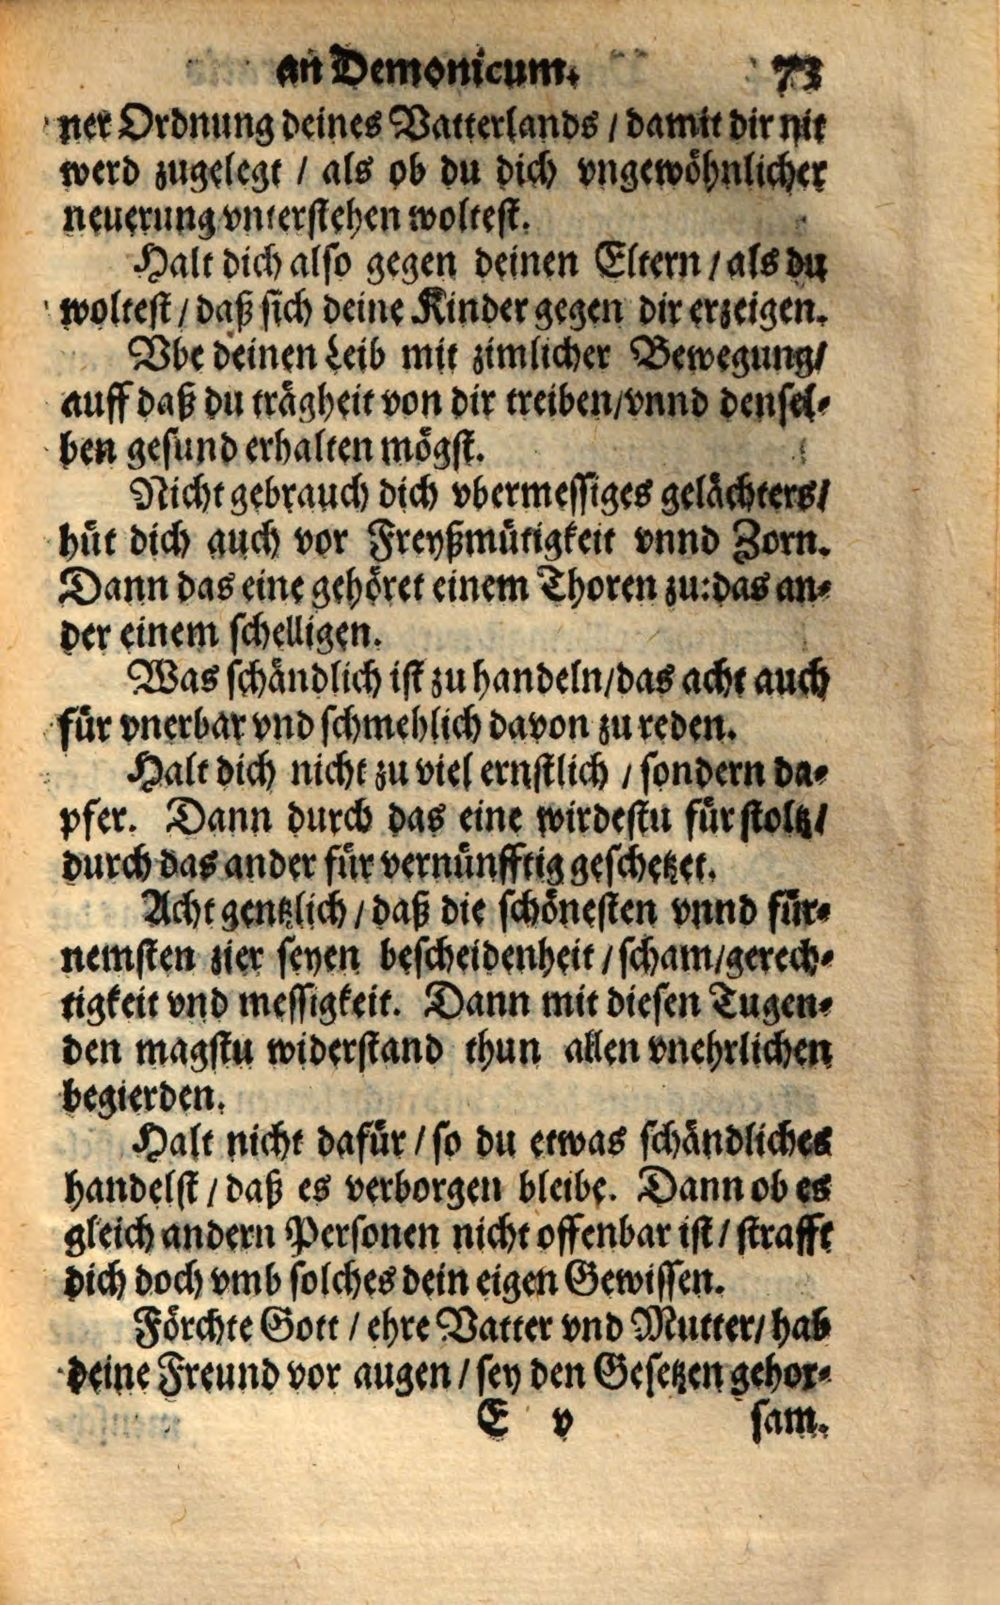 an Demonicum. 73
ner Ordnung deines Vatterlands / damit dir nit
werd zugelegt / als ob du dich vngewöhnlicher
neuerung vnterstehen woltest.
Halt dich also gegen deinen Eltern / als du
woltest / daß sich deine Kinder gegen dir erzeigen.
Vbe deinen Leib mit zimlicher Bewegung /
auff daß du trägheit von dir treiben / vnnd densel-
ben gesund erhalten mögst.
Nicht gebrauch dich vbermessiges gelächters /
hüt dich auch vor Freyßmütigkeit vnnd Zorn.
Dann das eine gehöret einem Thoren zu: das an-
der einem schelligen.
Was schändlich ist zu handeln / das acht auch
für vnerbar vnd schmehlich davon zu reden.
Halt dich nicht zu viel ernstlich / sondern da-
pfer. Dann durch das eine wirdestu für stoltz /
durch das ander für vernünfftig geschetzet.
Acht gentzlich / daß die schönesten vnnd für-
nemsten zier seyen bescheidenheit / scham / gerech-
tigkeit vnd messigkeit. Dann mit diesen Tugen-
den magstu widerstand thun allen vnehrlichen
begierden.
Halt nicht dafür / so du etwas schändliches
handelst / daß es verborgen bleibe. Dann ob es
gleich andern Personen nicht offenbar ist / strafft
dich doch vmb solches dein eigen Gewissen.
Förchte Gott / ehre Vatter vnd Mutter / hab
deine Freund vor augen / sey den Gesetzen gehor-
E v sam.